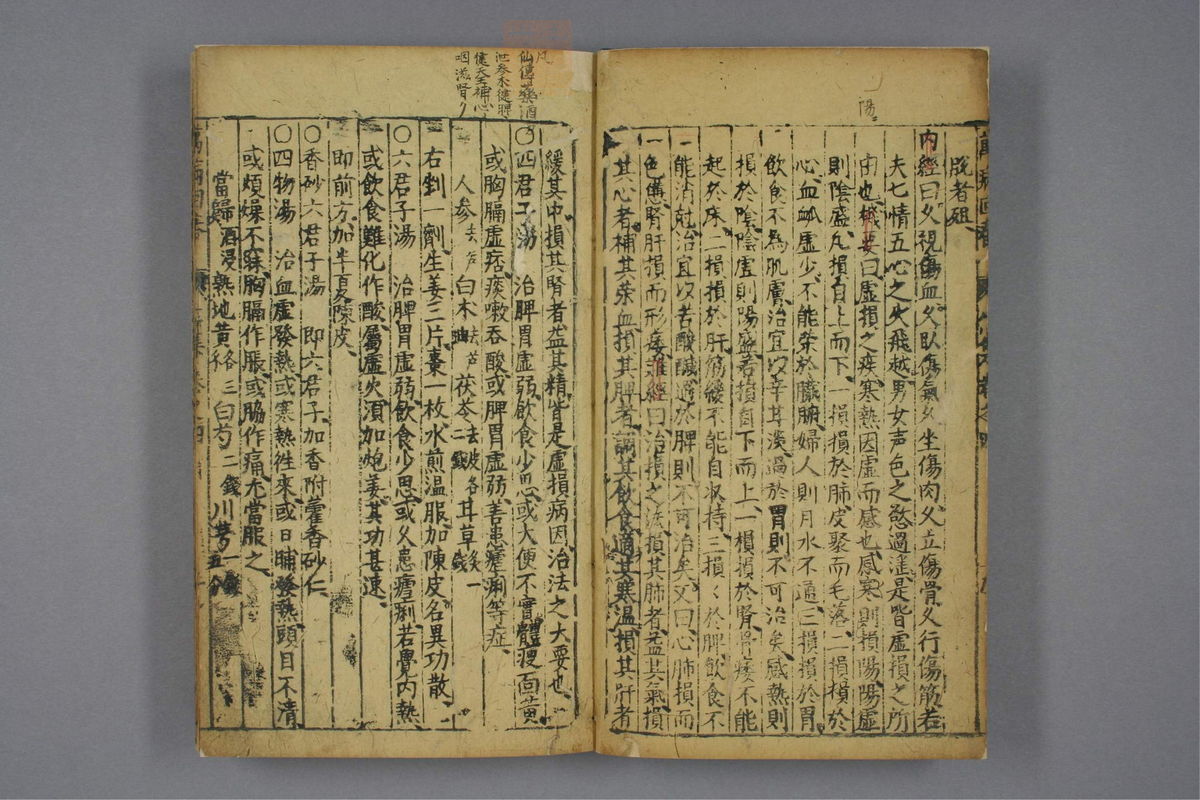 陽
脫者俎
內經曰久視傷血久臥傷氣久坐傷肉久立傷骨久行傷筋若
夫七情五心之火飛越男女声色之慾過淫是皆虛損之所
由也機要曰虛損之疾寒熱因虛而感也感寒則損陽陽虛
則陰盛凡損自上而下一損損於肺皮聚而毛落二損損於
心血脉虛少不能荣於臟腑婦人則月水不通三損損於胃
飲食不為肌膚治宜以辛甘淡過於胃則不可治矣感熱則
損於陰陰虛則陽盛若損自下而上一損損於腎骨痿不能
起於床二損損於肝筋緩不能自収持三損〻於脾飲食不
能消尅治宜以苦酸醎過於脾則不可治矣又曰心肺損而
色憊腎肝損而形痿難經曰治損之法損其肺者益其氣損
其心者補其荣血損其脾者調其飲食適其寒温損其肝者
凡
仙傳藥酒
補心
滋腎
緩其中損其腎者益其精皆是虛損病因治法之大要也
〇四君子湯 治脾胃虛弱飲食少思或大便不實體瘦面黃
或胸膈虛痞痰嗽吞酸或脾胃虛弱善患瘧痢等症
人参去芦 白木 茯苓去皮各二錢 甘草炙一錢
右剉一劑生姜三片棗一枚水煎温服加陳皮名異功散
〇六君子湯 治脾胃虛弱飲食少思或久患瘧痢若覺內熱
或飲食難化作酸屬虛火須加炮姜其功甚速
即前方加半夏陳皮
〇香砂六君子湯 即六君子加香附藿香砂仁
〇四物湯 治血虛發熱或寒熱徃來或日晡發熱頭目不清
或煩燥不寐胸膈作脹或脇作痛尤當服之
當歸酒浸 熟地黃各三 白芍二錢 川芎一錢五分